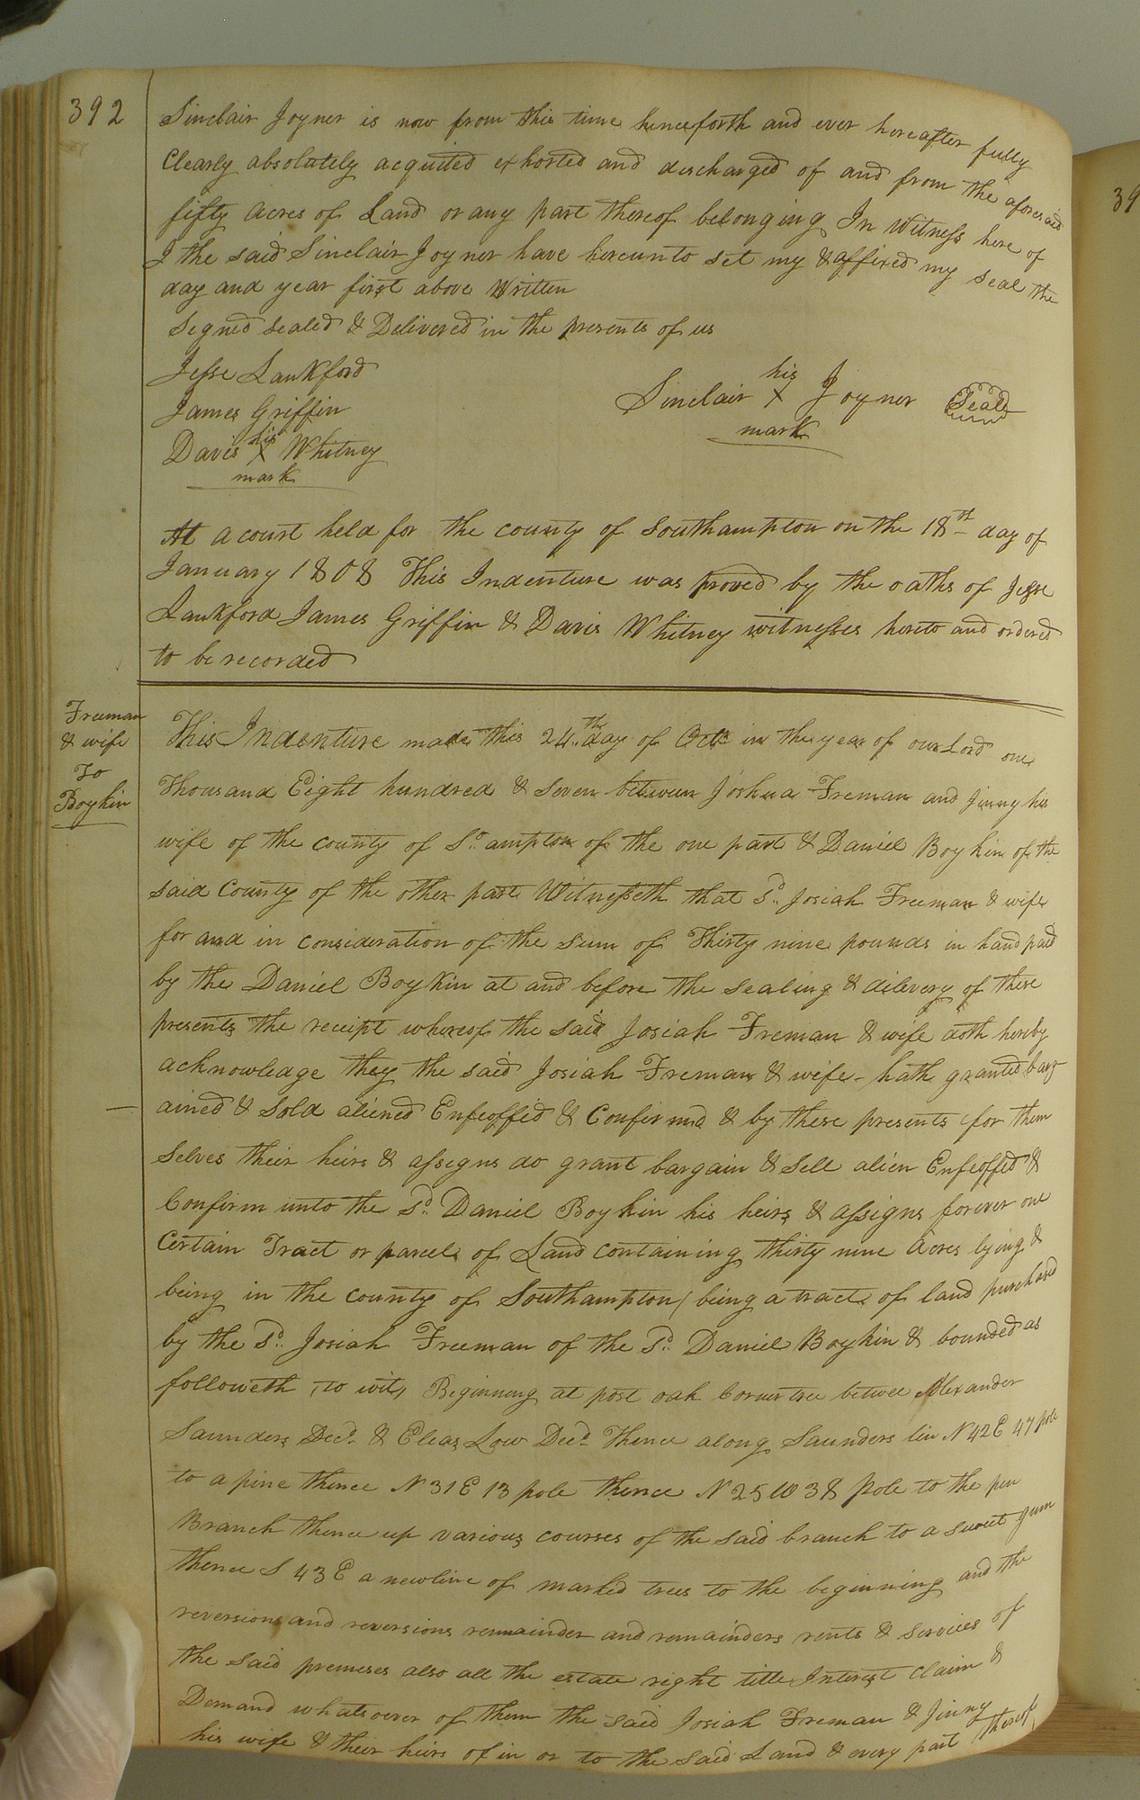 392
Sinclair Joyner is now from this time henceforth and ever hereafter fully
Clearly absolutely acquited exhorted and discharged of and from the aforesaid
fifty acres of Land or any part thereof belonging In Witness here of
I the said Sinclair Joyner have hereunto set my & affixed my seal the
day and year first above Written
Segned sealed & Delivered in the presents of us
Jesse Lankford
James Griffin
Davis his X Whitney
mark
Sinclair his X Joyner Seal
mark
At a court held for the county of Southampton on the 18th day of
January 1808 This Indenture was proved by the oaths of Jesse
Lankford James Griffin & Davis Whitney witnesses hereto and ordered
to be recorded
Freeman
& wife
To
Boykin
This Indenture made this 24th day of Octr in the year of our Lord one
Thousand Eight hundred & Seven between Joshua Freman and Jinny his
wife of the county of So. ampton of the one part & Daniel Boykin of the
said County of the other part Witnesseth that Sd. Josiah Freeman & wife
for and in consideration of the sum of Thirty nine pounds in hand paid
by the Daniel Boykin at and before the sealing & dilevery of these
presents the receipt whereof the said Josiah Freman & wife doth hereby
acknowledge they the said Josiah Freman & wife - hath granted barg
ained & Sold aliened Enfeoffed & Confirmd & by these presents for them
Selves their heirs & assigns do grant bargain & Sell alien Enfeoffed &
Confirm unto the Sd. Daniel Boykin his heirs & assigns forever one
Certain Tract or parcels of Land containing thirty nine Acres lying &
being in the county of Southampton (being a tract of land purchased
by the Sd. Josiah Freeman of the Sd. Daniel Boykin & bounded as
followeth, to wit, Beginning at post oak Corner tree betwee Alexander
Saunders Decd. & Eleaz Low Decd. Thence along Saunders lin N 42 E 47 pole
to a pine thence N 31 E 13 pole thence N 25 W 38 Pole to the pen
Branch thence up various courses of the said branch to a sweet gum
thence S 43 E a new line of marked trees to the beginning and the
reversions and reversions remainder and remainders rents & services of
the said premeses also all the estate right title Interest claim &
Demand whatsoever of them the said Josiah Freman & Jinny
his wife & their heirs of in or to the said Land & every part thereof
39